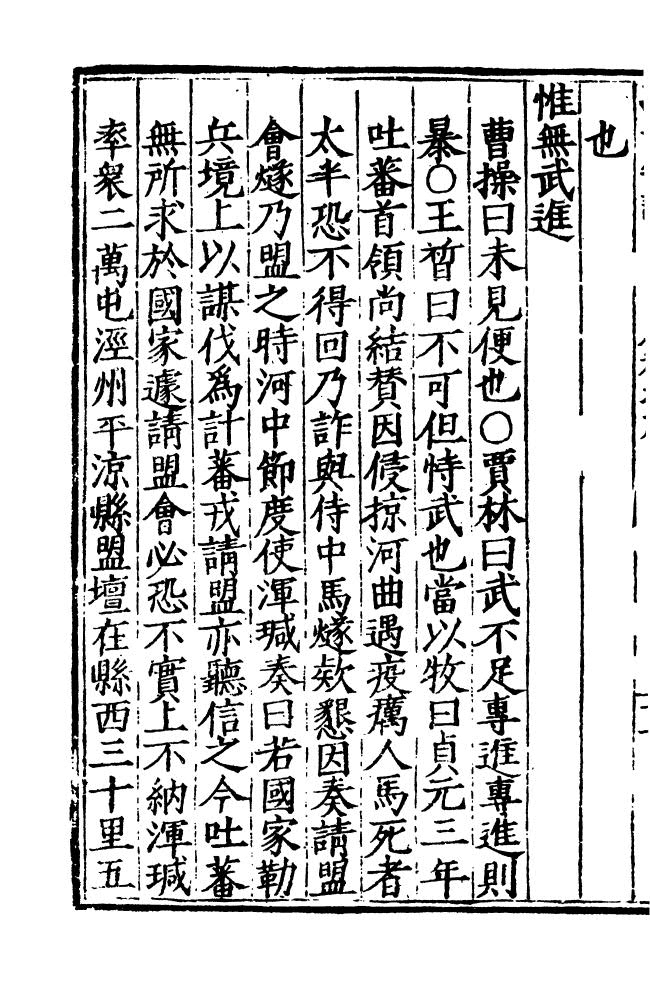 也
惟無武進
曹操曰未見便也○賈林曰武不足專進專進則
暴○王晳曰不可但恃武也當以牧曰貞元三年
吐蕃首領尚結賛因侵掠河曲遇疫癘人馬死者
太半恐不得回乃詐與侍中馬燧欵懇因奏請盟
會燧乃盟之時河中節度使渾瑊奏曰若國家勒
兵境上以謀伐爲計蕃戎請盟亦聽信之今吐蕃
無所求於國家遽請盟會必恐不實上不納渾瑊
率衆二萬屯涇州平涼縣盟壇在縣西三十里五